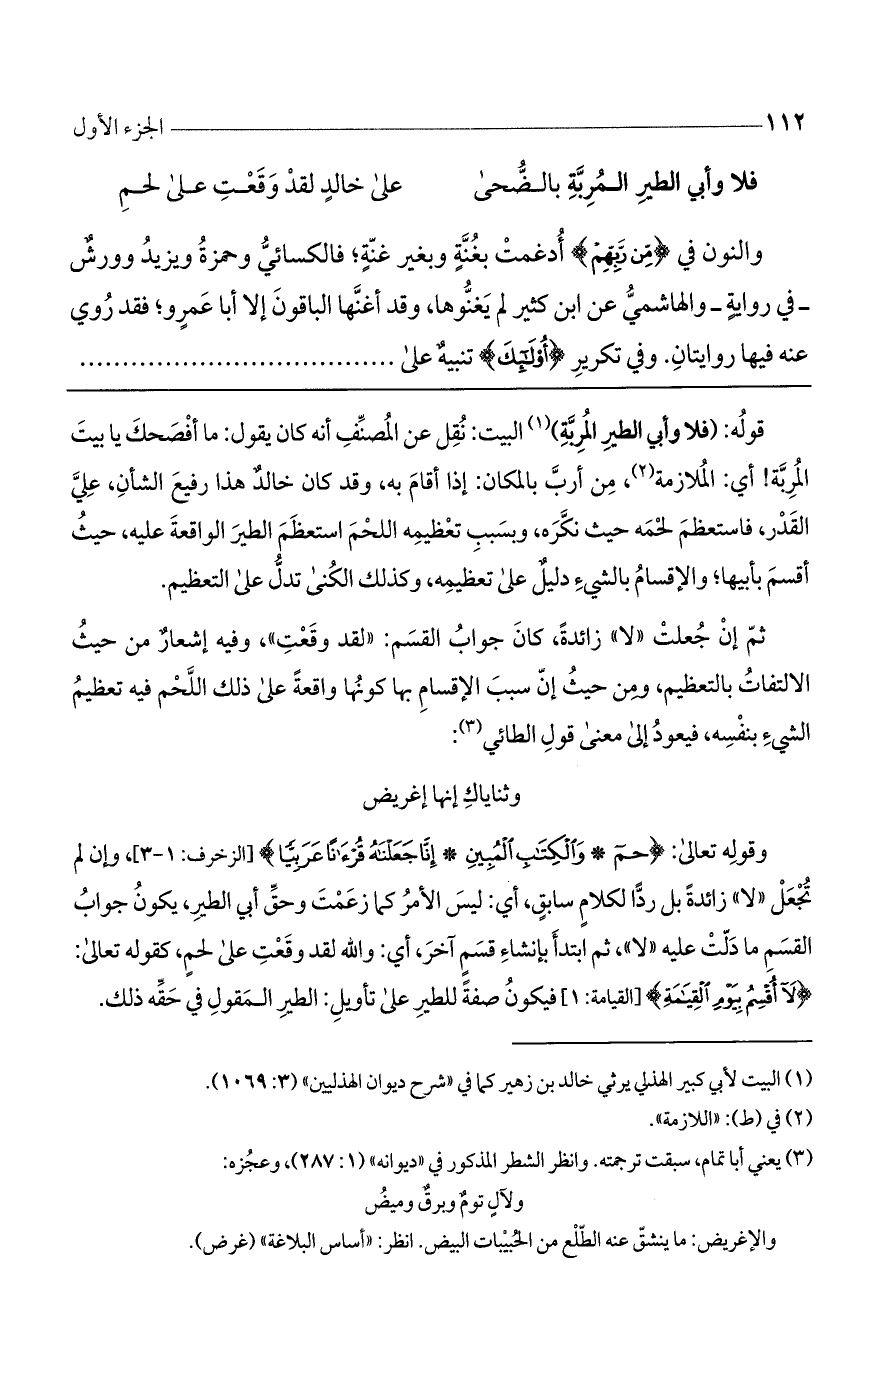 ١١٢ الجزء الأول
فلا وأبي الطيرِ الـمُرِبَّةِ بالـضُّحىٰ علىٰ خالدٍ لقدْ وَقَعْـتِ عـلىٰ لحـمِ
والنون في ﴿مِّن رَّبِّهِمْ﴾ أُدغمتْ بغُنَّةٍ وبغير غنّةٍ؛ فالكسائيُّ وحمزةُ ويزيدُ وورشٌ
ـ في روايةٍ ـ والهاشميُّ عن ابن كثير لم يَغنُّوها، وقد أغنَّها الباقونَ إلا أبا عَمرٍو؛ فقد رُوي
عنه فيها روايتانِ. وفي تكريرِ ﴿أُوْلَٰٓئِكَ﴾ تنبيهٌ علىٰ .....................................
قولُه: (فلا وأبي الطيرِ المُرِبَّة)(١) البيت: نُقِل عن المُصنِّفِ أنه كان يقول: ما أفْصَحكَ يا بيتَ
المُرِبَّة! أي: المُلازمة(٢)، مِن أربَّ بالمكان: إذا أقامَ به، وقد كان خالدٌ هذا رفيعَ الشأنِ، عليَّ
القَدْر، فاستعظمَ لحْمَه حيث نكَّرَه، وبسَببِ تعْظيمِه اللحْمَ استعظَمَ الطيرَ الواقعةَ عليه، حيثُ
أقسمَ بأبيها؛ والإقسامُ بالشيءِ دليلٌ علىٰ تعظيمِه، وكذلك الكُنىٰ تدلُّ علىٰ التعظيم.
ثمّ إنْ جُعلتْ «لا» زائدةً، كانَ جوابُ القسَم: «لقد وقَعْتِ»، وفيه إشعارٌ من حيثُ
الالتفاتُ بالتعظيم، ومِن حيثُ إنّ سببَ الإقسامِ بها كونُها واقعةً علىٰ ذلك اللَّحْم فيه تعظيمُ
الشيءِ بنفْسِه، فيعودُ إلىٰ معنىٰ قولِ الطائي(٣):
وثناياكِ إنها إغريض
وقولِه تعالىٰ: ﴿حمٓ * وَٱلْكِتَٰبِ ٱلْمُبِينِ * إِنَّا جَعَلْنَٰهُ قُرْءَٰنًا عَرَبِيًّا﴾ [الزخرف: ١-٣]، وإن لم
تُجْعَلْ «لا» زائدةً بل ردًّا لكلامٍ سابقٍ، أي: ليسَ الأمرُ كما زعَمْتَ وحقِّ أبي الطيرِ، يكونُ جوابُ
القسَمِ ما دَلّتْ عليه «لا»، ثم ابتدأَ بإنشاءِ قسَمٍ آخرَ، أي: والله لقد وقَعْتِ علىٰ لحمٍ، كقوله تعالىٰ:
﴿لَآ أُقْسِمُ بِيَوْمِ ٱلْقِيَٰمَةِ﴾ [القيامة: ١] فيكونُ صفةً للطيرِ علىٰ تأويلِ: الطير الـمَقولِ في حَقِّه ذلك.
(١) البيت لأبي كبير الهذلي يرثي خالد بن زهير كما في «شرح ديوان الهذليين» (٣: ١٠٦٩).
(٢) في (ط): «اللازمة».
(٣) يعني أبا تمام، سبقت ترجمته. وانظر الشطر المذكور في «ديوانه» (١: ٢٨٧)، وعجُزه:
ولآلٍ تومٌ وبرقٌ وميضُ
والإغريض: ما ينشقّ عنه الطّلْع من الحُبيْبات البيض. انظر: «أساس البلاغة» (غرض).